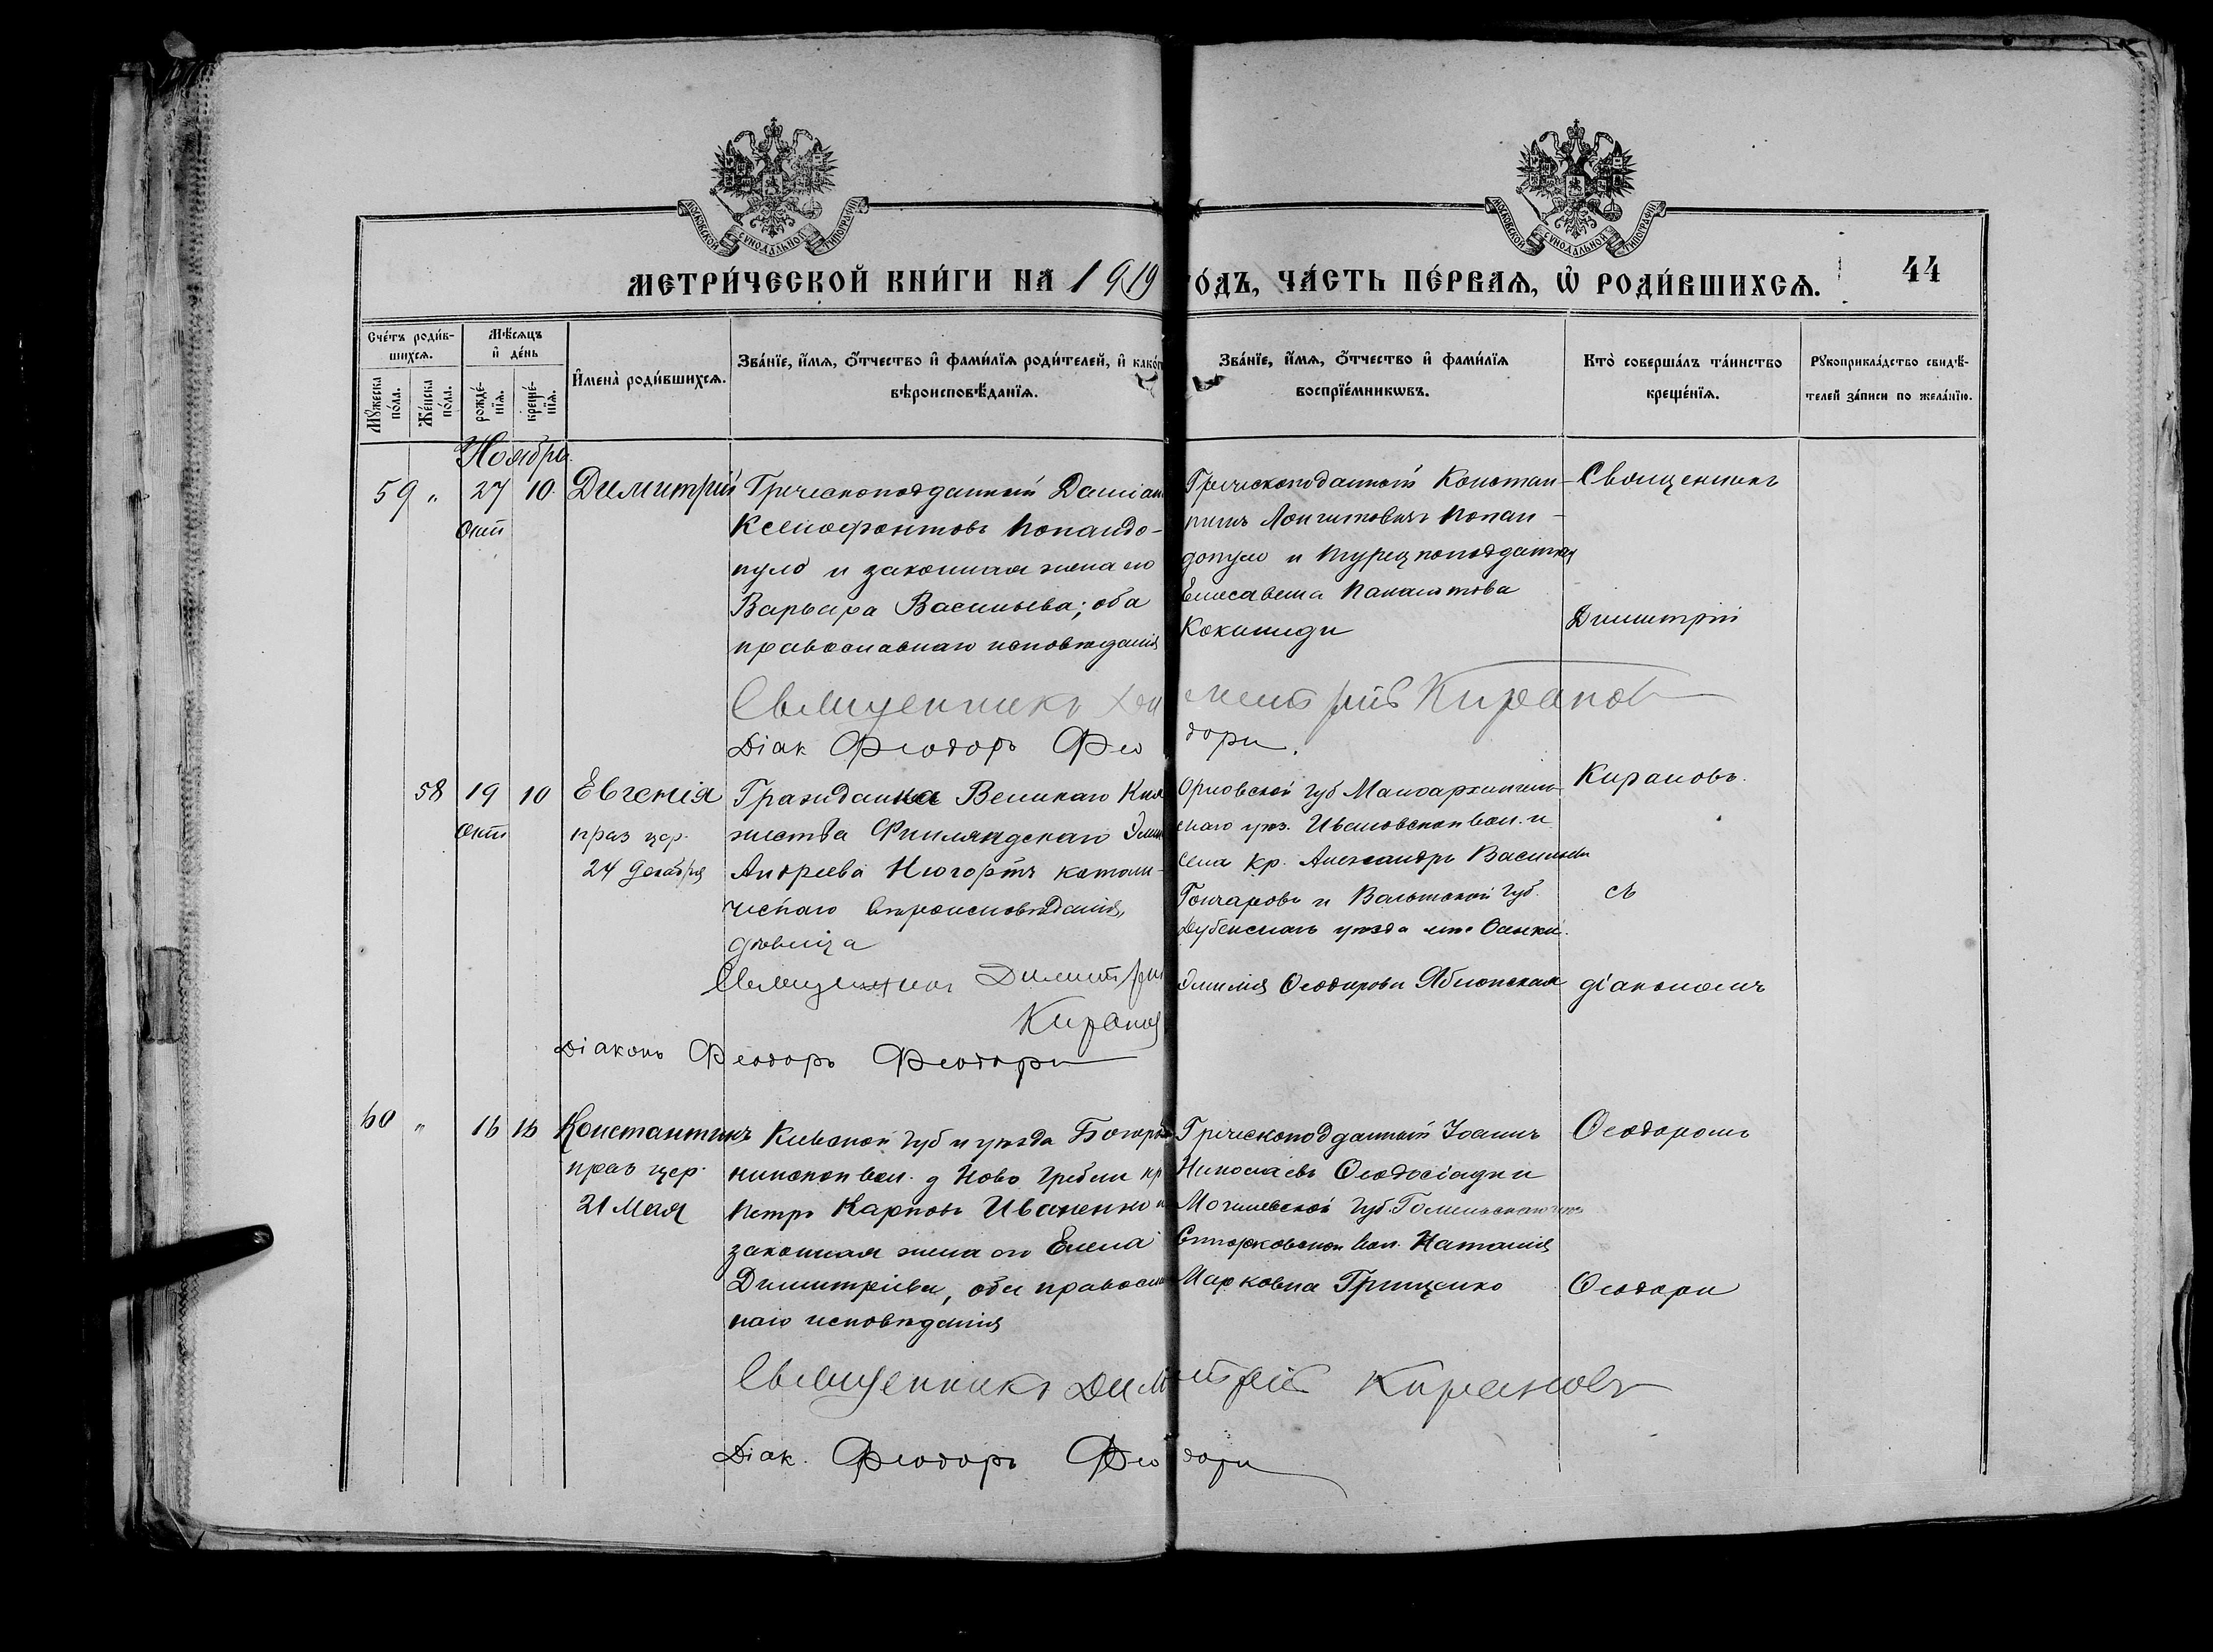 МОСКОВСКОЙ СѴНОДАЛЬНОЙ ТИПОГРАФІИ
МОСКОВСКОЙ СѴНОДАЛЬНОЙ ТИПОГРАФІИ
МЕТРИ́ЧЕСКОЙ КНИ́ГИ НА 1919 ГО́ДЪ, ЧА́СТЬ ПЕ́РВАѦ, Ѡ҆ РОДИ́ВШИХСѦ.
44
Сче́тъ роди́в-
шихсѧ.
Мꙋ́жеска по́ла.
Же́нска по́ла.
Мѣ́сѧцъ
и҆ де́нь
рожде́-
нїѧ.
креще́-
нїѧ.
И҆мена̀ роди́вшихсѧ.
Зва́нїе, и҆́мѧ, ѻ҆́тчество и҆ фами́лїѧ роди́телей, и҆ како́г
вѣроисповѣ́данїѧ.
Зва́нїе, и҆́мѧ, ѻ҆́тчество и҆ фами́лїѧ
воспрїе́мникѡвъ.
Кто̀ соверша́лъ та́инство
креще́нїѧ.
Рꙋкоприкла́дство свидѣ́-
телей за́писи по жела́нїю.
Ноября
59 „ 27 10 Димитрій
Окт
Греческоподданный Даміан
Ксенофонтовъ Попандо-
пуло и законная жена его
Варвара Васильева; оба
православнаго исповѣданія
Греческоподданный Констан-
тинъ Попан-
допуло и турецкоподданная
Елисавета
Кокиниди
Священникъ
Димитрій
Священникъ Димитрій Кирановъ
Діак Ѳеодоръ Ѳеодори.
58 19 10 Евгенія
Окт
праз цер.
24 Декабря
Гражданка Великаго Кня
жества Финляндскаго
Андреева католи-
ческаго вѣроисповѣданія,
дѣвица
Орловской губ Малоархангель-
скаго уѣз. Ивановской вол. и
села кр. Александръ Васильевъ
Гончаровъ и Волынской губ.
Дубенскаго уѣзда
Эмилія Ѳеодорова Яблонская
Кирановъ.
съ
діакономъ
Священникъ Димитрій
Кирановъ
Діаконъ Ѳеодоръ Ѳеодори
60 „ 16 16 Константинъ
праз цер.
21 Мая
Кіевской губ и уѣзда
вол. д Ново Гребли кр
Петръ Карповъ Иваненко и
законная жена его Елена
Димитріева, оба православ
наго исповѣданія
Греческоподданный Іоаннъ
Николаевъ Ѳеодосіади и
Могилевской губ. Гомельскаго уѣз
вол. Наталія
Марковна Гриценко
Ѳеодоромъ
Ѳеодори
Священникъ Димитрій Кирановъ
Діак. Ѳеодоръ Ѳеодори